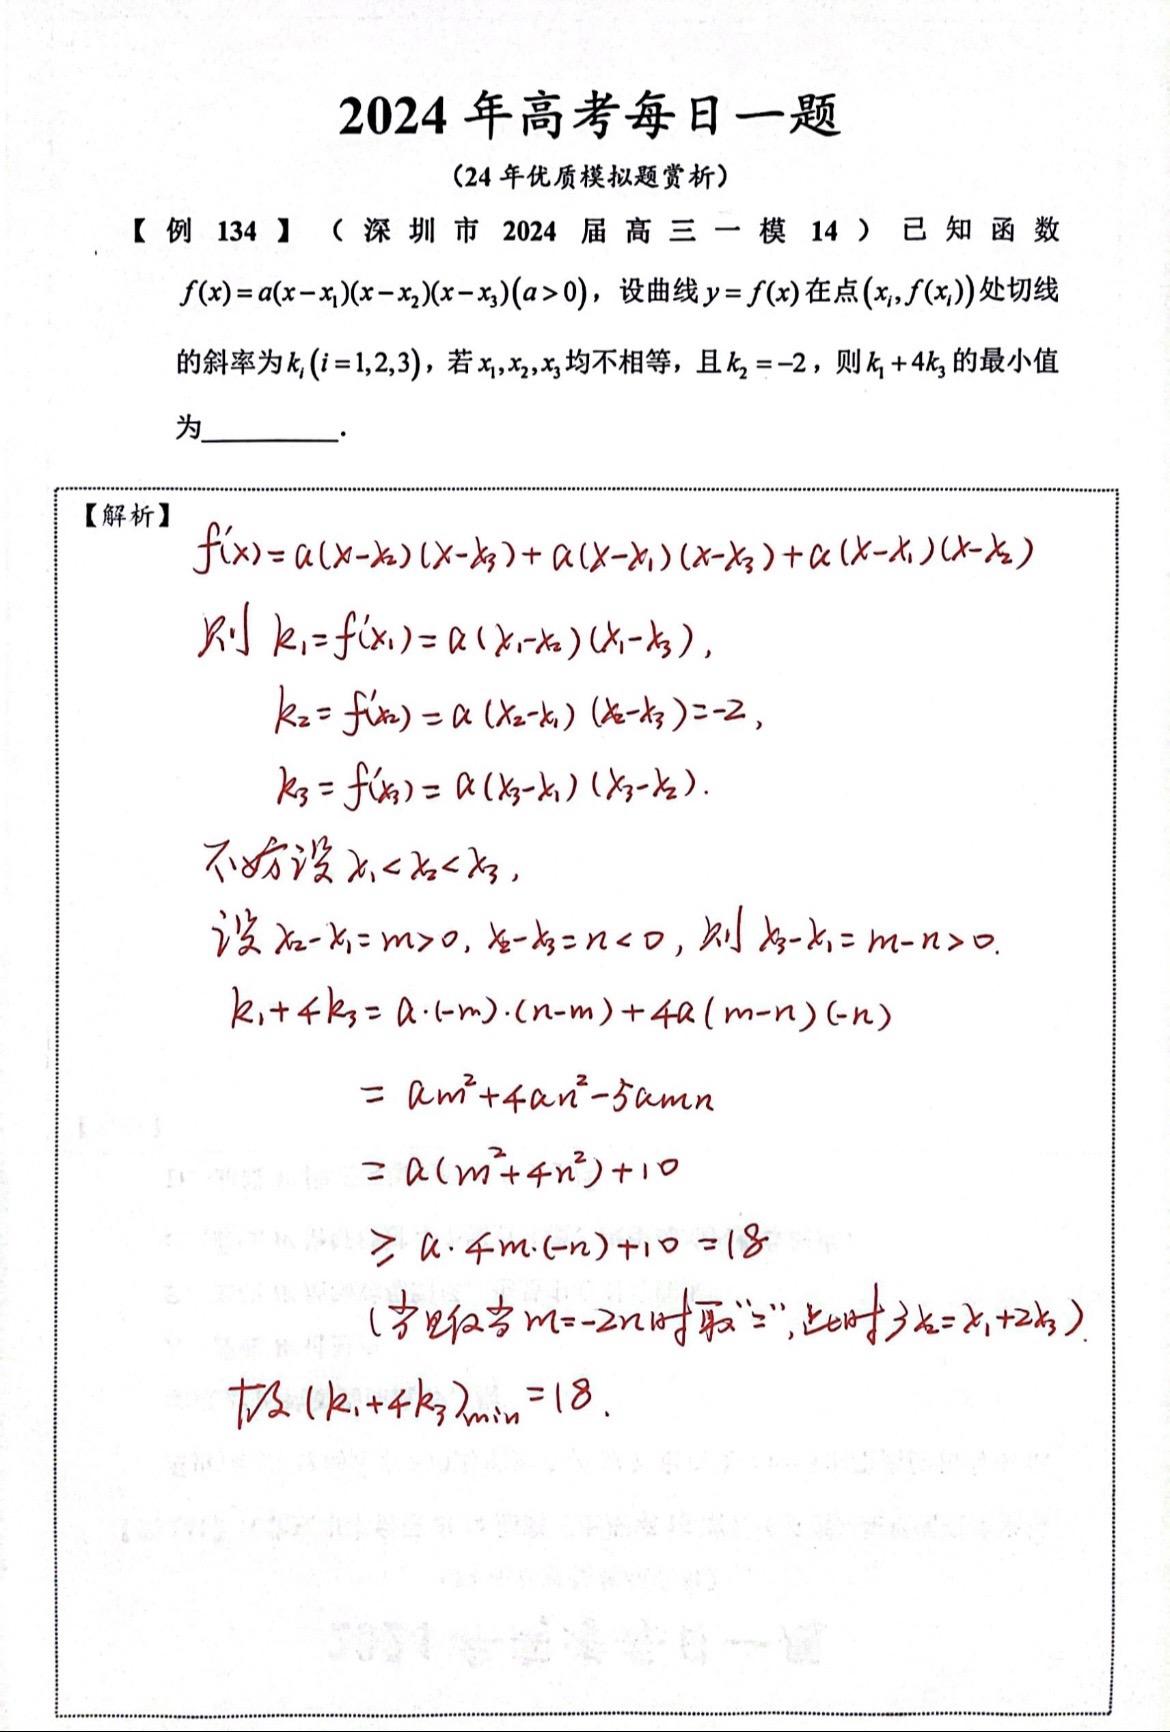 2024 年高考每日一题
（24 年优质模拟题赏析）
【例 134】（深圳市 2024 届高三一模 14）已知函数
f(x)=a(x−x₁)(x−x₂)(x−x₃)(a>0)，设曲线y=f(x)在点(xᵢ,f(xᵢ))处切线
的斜率为kᵢ(i=1,2,3)，若x₁,x₂,x₃均不相等，且k₂=−2，则k₁+4k₃的最小值
为________.
【解析】
f′(x)=a(x-x₂)(x-x₃)+a(x-x₁)(x-x₃)+a(x-x₁)(x-x₂)
则 k₁=f′(x₁)=a(x₁-x₂)(x₁-x₃),
k₂=f′(x₂)=a(x₂-x₁)(x₂-x₃)=-2,
k₃=f′(x₃)=a(x₃-x₁)(x₃-x₂).
不妨设 x₁<x₂<x₃,
设 x₂-x₁=m>0, x₂-x₃=n<0, 则 x₃-x₁=m-n>0.
k₁+4k₃=a·(-m)·(n-m)+4a(m-n)(-n)
=am²+4an²-5amn
=a(m²+4n²)+10
≥a·4m·(-n)+10=18
(当且仅当m=-2n时取“=”,此时3x₂=x₁+2x₃).
故(k₁+4k₃)min=18.